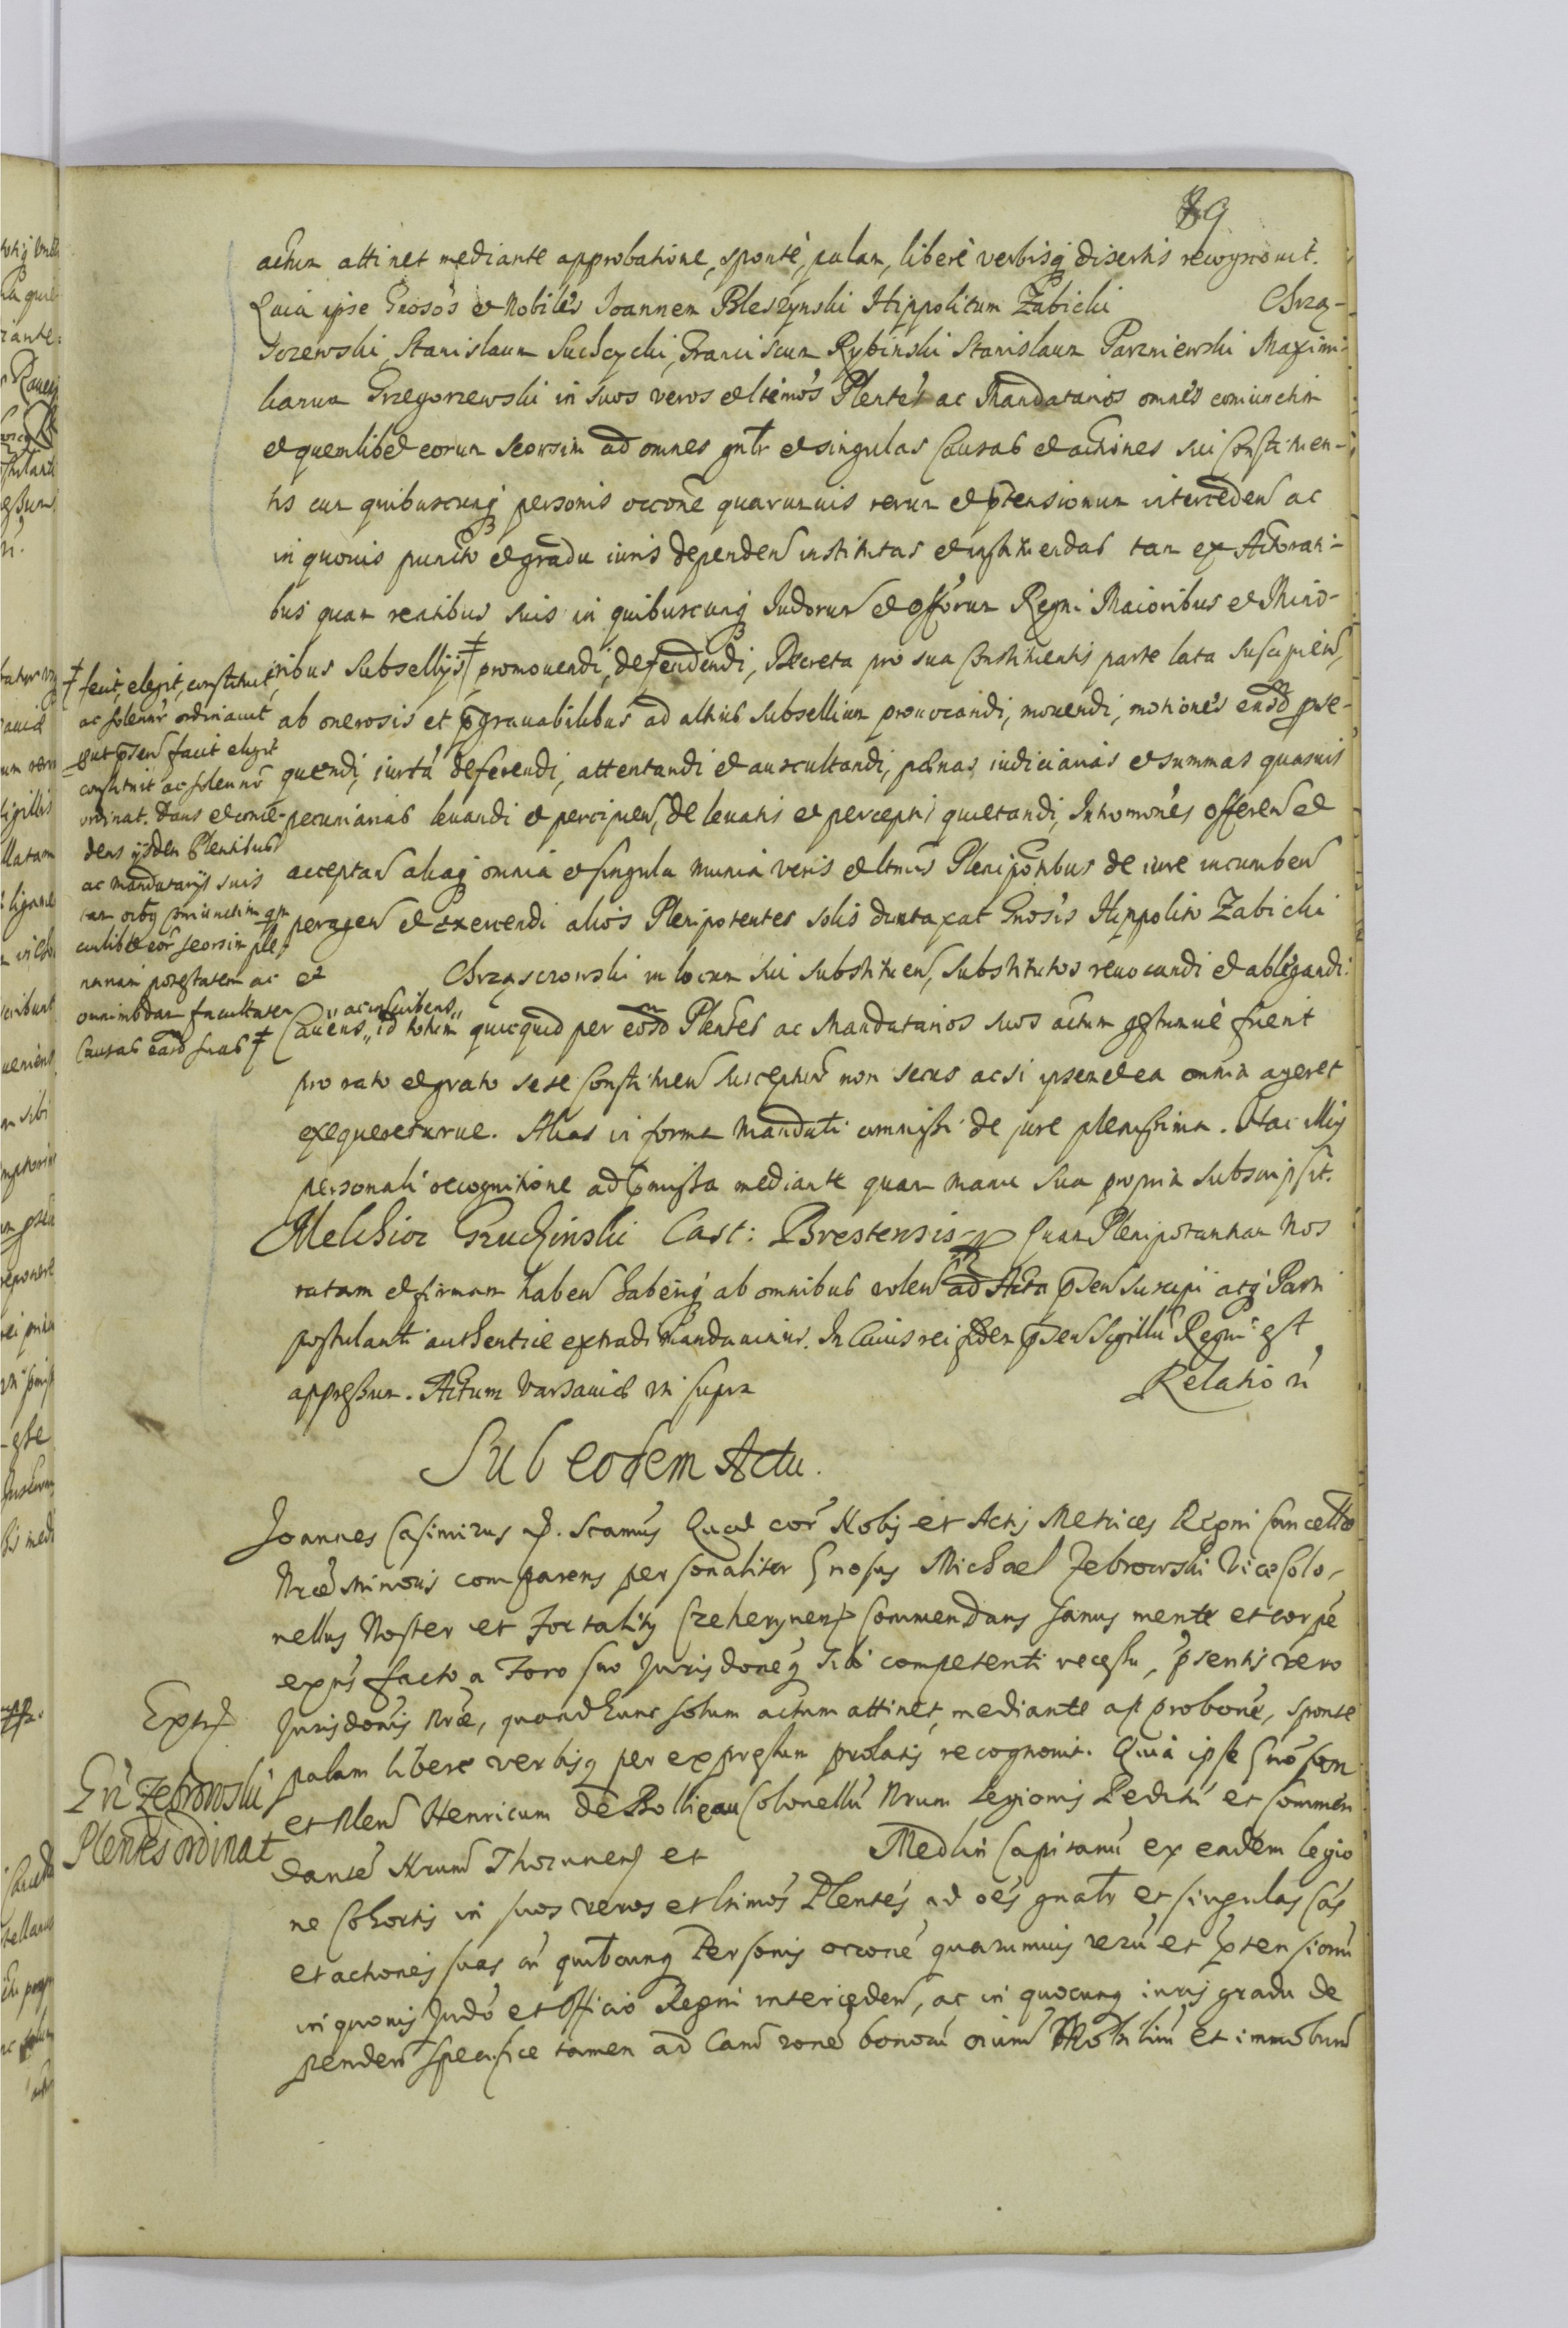 89
actum attinet mediante approbatione, sponte, palam, libere verbisq disertis recognovit.
Quia ipse Gnosos et Nobiles Joannem Bleszynski Hippolitum Zabicki Chrzą-
szczewski, Stanislaum Suchcycki, Franciscum Rybinski Stanislaum Parzniewski Maximi-
lianum Grzegorzewski in suos veros et ltimos Plentes ac Mandatarios omnes coniunctim
et quemlibet eorum seorsim ad omnes gntr et singulas Causas et actiones sui Constituen-
tis cum quibuscunq personis occone quarumvis rerum et ptensionum interceden ac
in quovis puncto et gradu iuris dependen institutas et instituendas tam ex Actorati-
bus quam reatibus suis in quibuscunq Judiorum et Offorum Regni Maioribus et Mino-
ribus Subsellijs ‡ promovendi, defendendi, Decreta pro sua Constituentis parte lata suscipien,
ab onerosis et pgravabilibus ad altius subsellium provocandi, movendi, motiones easd prose-
quendi, iurta deferendi, attentandi et auscultandi, pœnas iudiciarias et summas quasvis
pecuniarias levandi et percipien, de levatis et perceptis quietandi, Inhomones offeren et
acceptan aliaq omnia et singula munia veris et ltmis Plenipottibus de iure incumben
peragen et exercendi alios Plenipotentes solis duntaxat Gnosis Hippolito Zabicki
et Chrząsczowski in locum sui substituen, substitutos revocandi et ablegandi.
Cavens „ac inscribens„ id totum quicquid per eosd Plentes ac Mandatarios suos actum gestumve fuerit
pro rato et grato sese Constituen suscepturu non secus ac si ipsemet ea omnia ageret
exequereturue. Alias in forma Mandati ommissi de jure plenissima. Hac illius
personali recognitione ad pmissa mediante quam manu sua propria subscripsit.
Melchior Gruchinski Cast: Brestensis Quam Plenipotentiam Nos
ratam et firmam haben haberiq ab omnibus volen ad Acta psen suscipi atq Parti
postulanti authentice extradi mandavimus. In Cuius rei fidem psen Sigillu Regni est
appressum. Actum Varsaviæ uti supra Relatio n
‡ fecit, elegit, constituit,
ac solennr ordinavit
put psen facit elegit
constituit ac solennr
ordinat. Dans et conce-
dens ijsdem Plentibus
ac Mandatarijs suis
tam oibq coniunctim qm
cuilibet eor seorsim ple-
nariam potestatem ac
omnimodam facultatem
Causas easd suas ‡
Sub eodem Actu.
Joannes Casimirus D. Scamus Quod cor Nobis et Actis Metrices Regni Cancell
Nræ Minoris comparens personaliter Gnosus Michael Zebrowski Vicecolo-
nellus Noster et Fortality Czeherynens Commendans sanus mente et corpe
exns facto a Foro suo Jurisdoneq sibi competenti recessu, psentis vero
Jurisdonis Nræ, quoad hunc solum actum attinet, mediante approbone, sponte
palam libere verbisq per expressum prolatis recognovit. Quia ipse Gnosum
et Nlem Henricum de Bollieau Colonellu Nrum Legionis Peditu et Commen
dante Nrum Thorunens et Medlin Capitanu ex eadem legio
ne Cohortis in suos veros et ltimos Plentes ad oes gnatr et singulas Cas
et actiones suas cu quibcunq Personis occone quarumvis reru et ptensionu
in quovis Judo et Officio Regni interceden, ac in quocunq iuris gradu de
penden specifice tamen ad Cam rone bonoru oium Mobiliu et immobiliu
Exptr
Gn Zebrowski
Plentes ordinat